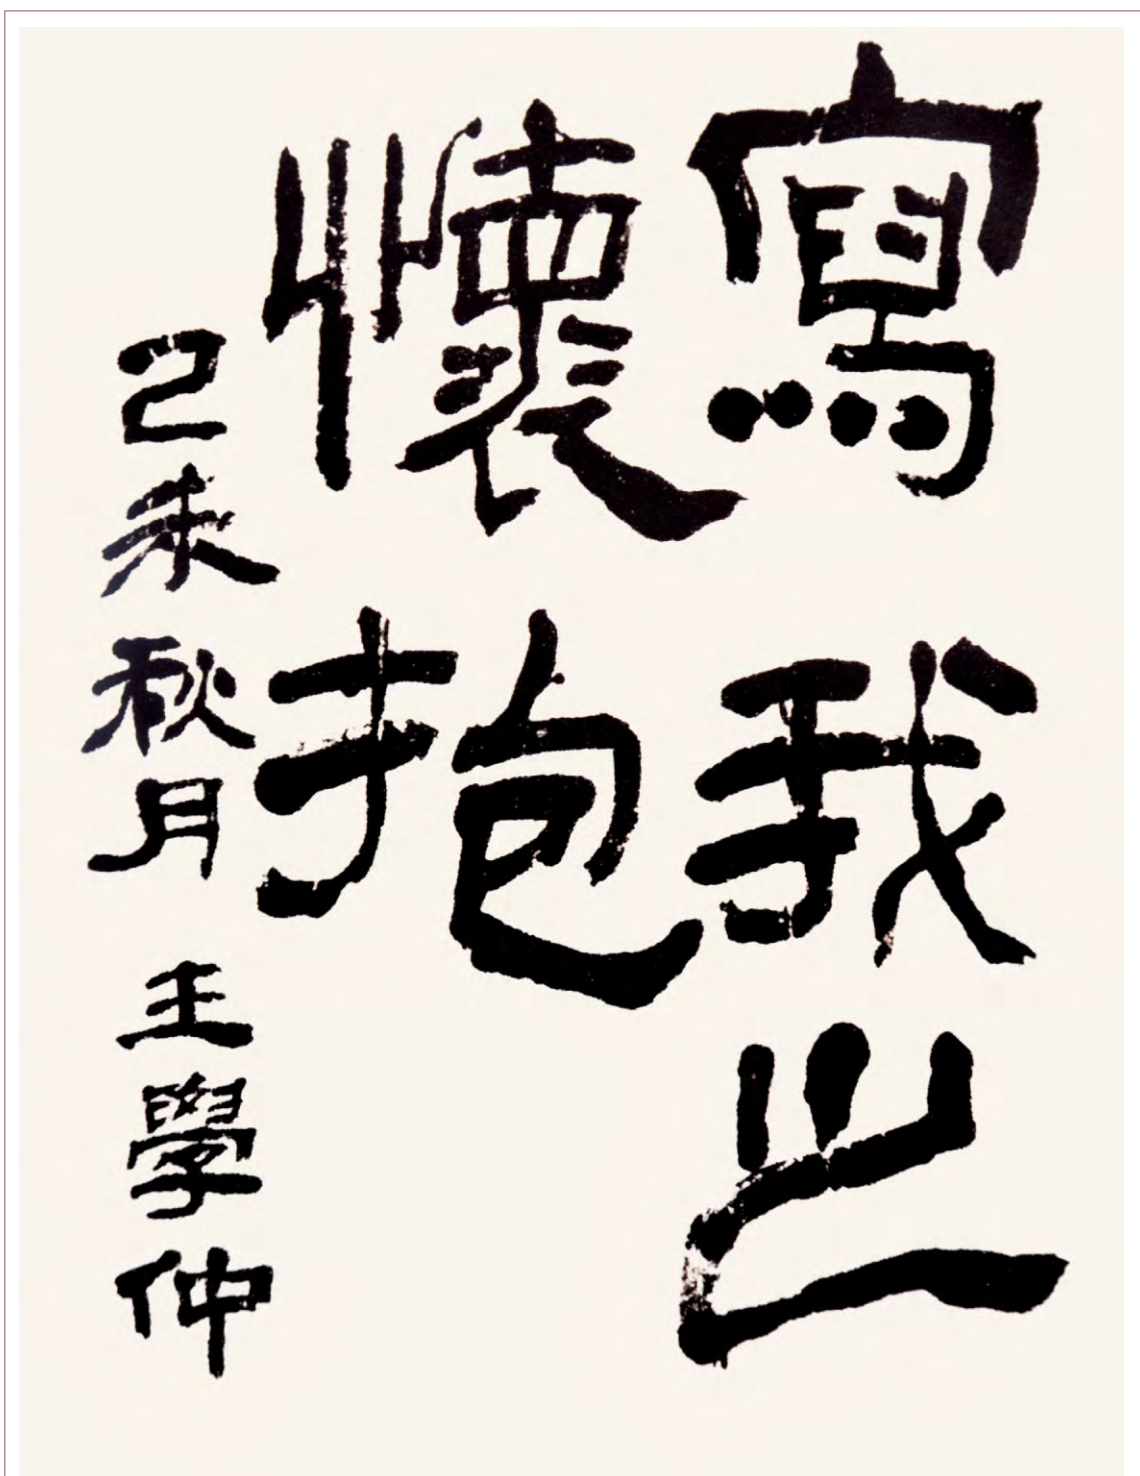 寫我之
懷抱
己未秋月 王學仲